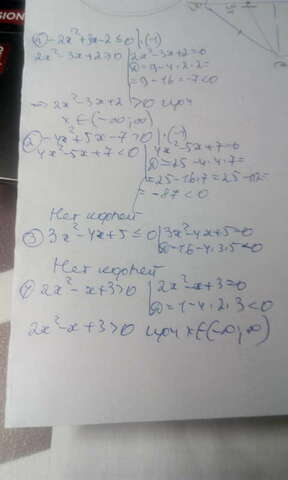 ① -2x²+3x-2≤0 |·(-1)
2x²-3x+2≥0 | 2x²-3x+2=0
D=9-4·2·2=
=9-16=-7<0
⇒ 2x²-3x+2>0
x∈(-∞;∞)
② -4x²+5x-7>0 |·(-1)
4x²-5x+7<0 | 4x²-5x+7=0
D=25-4·4·7=
=25-16·7=25-112=
=-87<0
Нет корней
③ 3x²-4x+5≤0 | 3x²-4x+5=0
D=16-4·3·5<0
Нет корней
④ 2x²-x+3>0 | 2x²-x+3=0
D=1-4·2·3<0
2x²-x+3>0 x∈(-∞;∞)